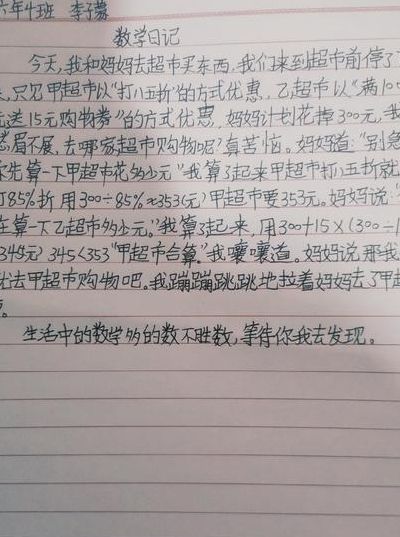 六年4班 李子蒙
数学日记
今天,我和妈妈去超市买东西,我们来到超市前停了
,只见甲超市以"打八五折"的方式优惠,乙超市以"满10
送15元购物券"的方式优惠,妈妈计划花掉300元,我
眉不展,去哪家超市购物呢?真苦恼。妈妈道:"别急
先算一下甲超市花多少元"我算了起来甲超市打八五折就
85%折用300÷85%≈353(元)甲超市要353元。妈妈说
在算一下乙超市多少元。"我算了起来,用300+15×(300÷1
345元) 345<353"甲超市合算。"我嚷嚷道。妈妈说那我
去甲超市购物吧。我蹦蹦跳跳地拉着妈妈去了甲超
。
生活中的数学多的数不胜数,等待你我去发现。